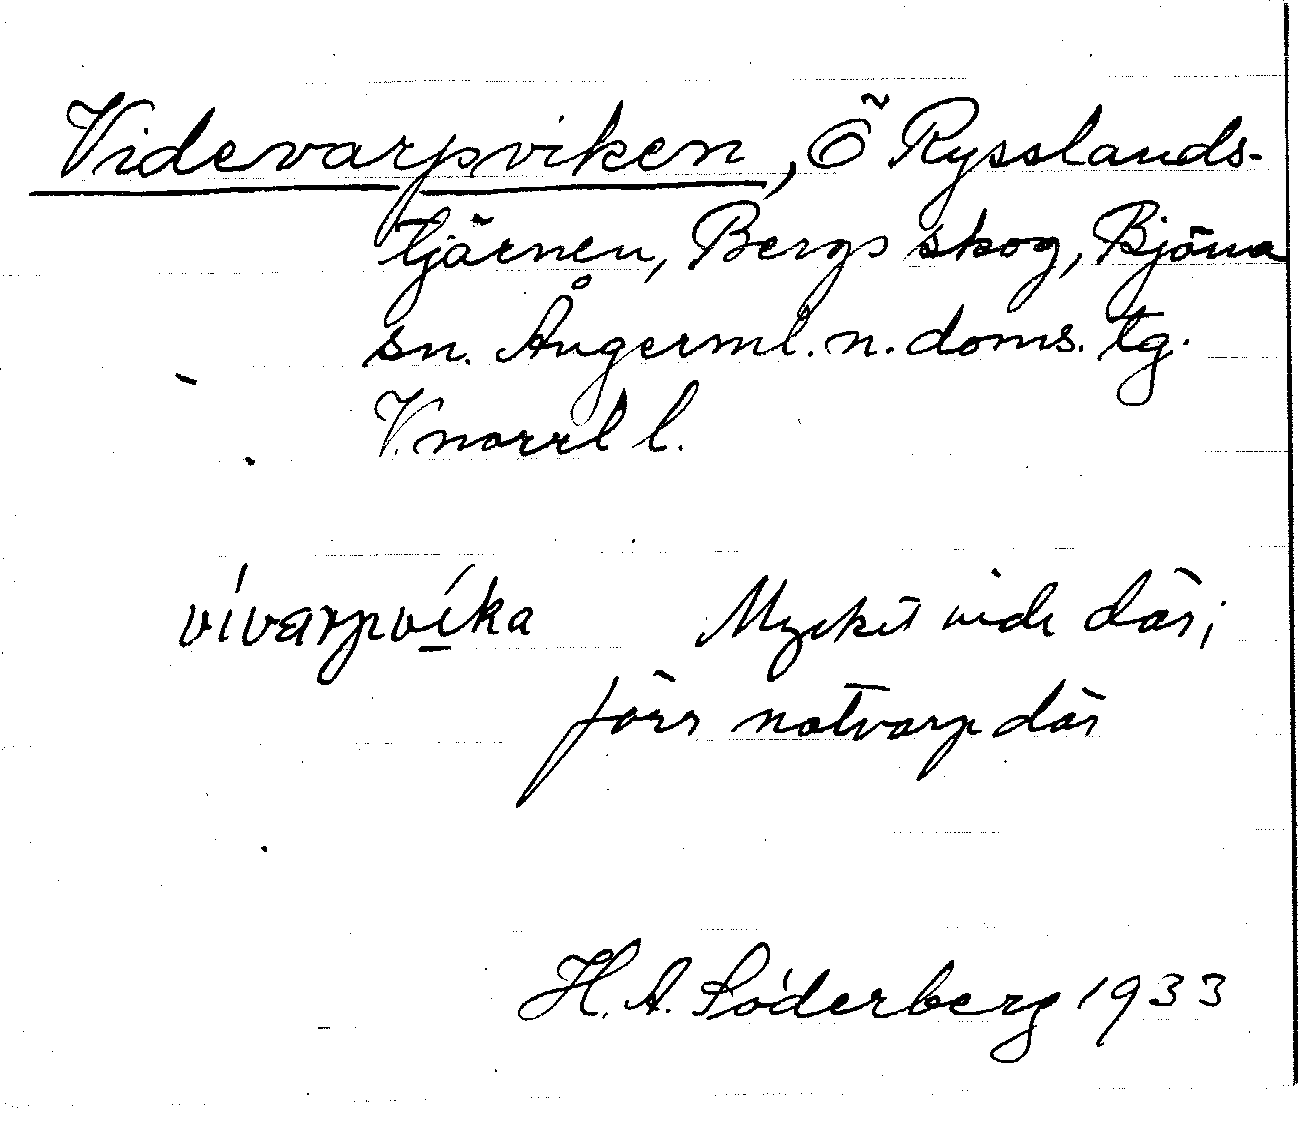 Videvarpviken, Ö Rysslands-
tjärnen, Bergs skog, Björna
sn. Ångerml. n. doms. tg.
V.norrl l.
vívarpvíka Mycket vide där;
förr notvarp där
H. A. Söderberg 1933